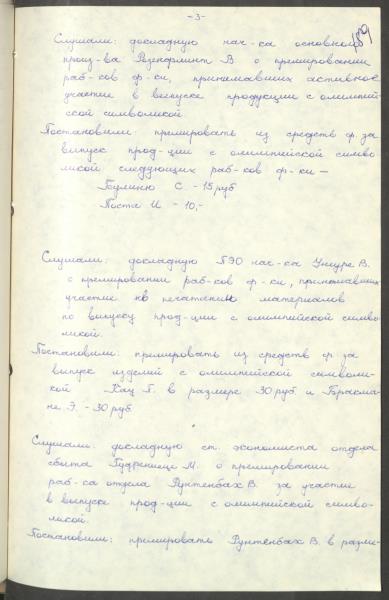 -3-
Слушали: докладную нач-ка основного
произ-ва Розенфлинт В. о премировании
раб-ков ф-ки, принимавших активное
участие в выпуске продукции с олимпий-
ской символикой
Постановили премировать из средств ф. за
выпуск прод-ции с олимпийской симво-
ликой следующих раб-ков ф-ки —
С. - 15 руб
Поста И. - 10,-
Слушали: докладную ПЭО нач-ка Унгуре В.
о премировании раб-ков ф-ки, принимавших
участие в печатении материалов
по выпуску прод-ции с олимпийской симво-
ликой.
Постановили: премировать из средств ф. за
выпуск изделий с олимпийской символи-
кой Кац Г. в размере 30 руб и Брасма-
не Э. - 30 руб
Слушали: докладную ст. экономиста отдела
сбыта М. о премировании
раб-са отдела Рунтенбах В. за участие
в выпуске прод-ции с олимпийской симво-
ликой.
Постановили: премировать Рунтенбах В. в разме-